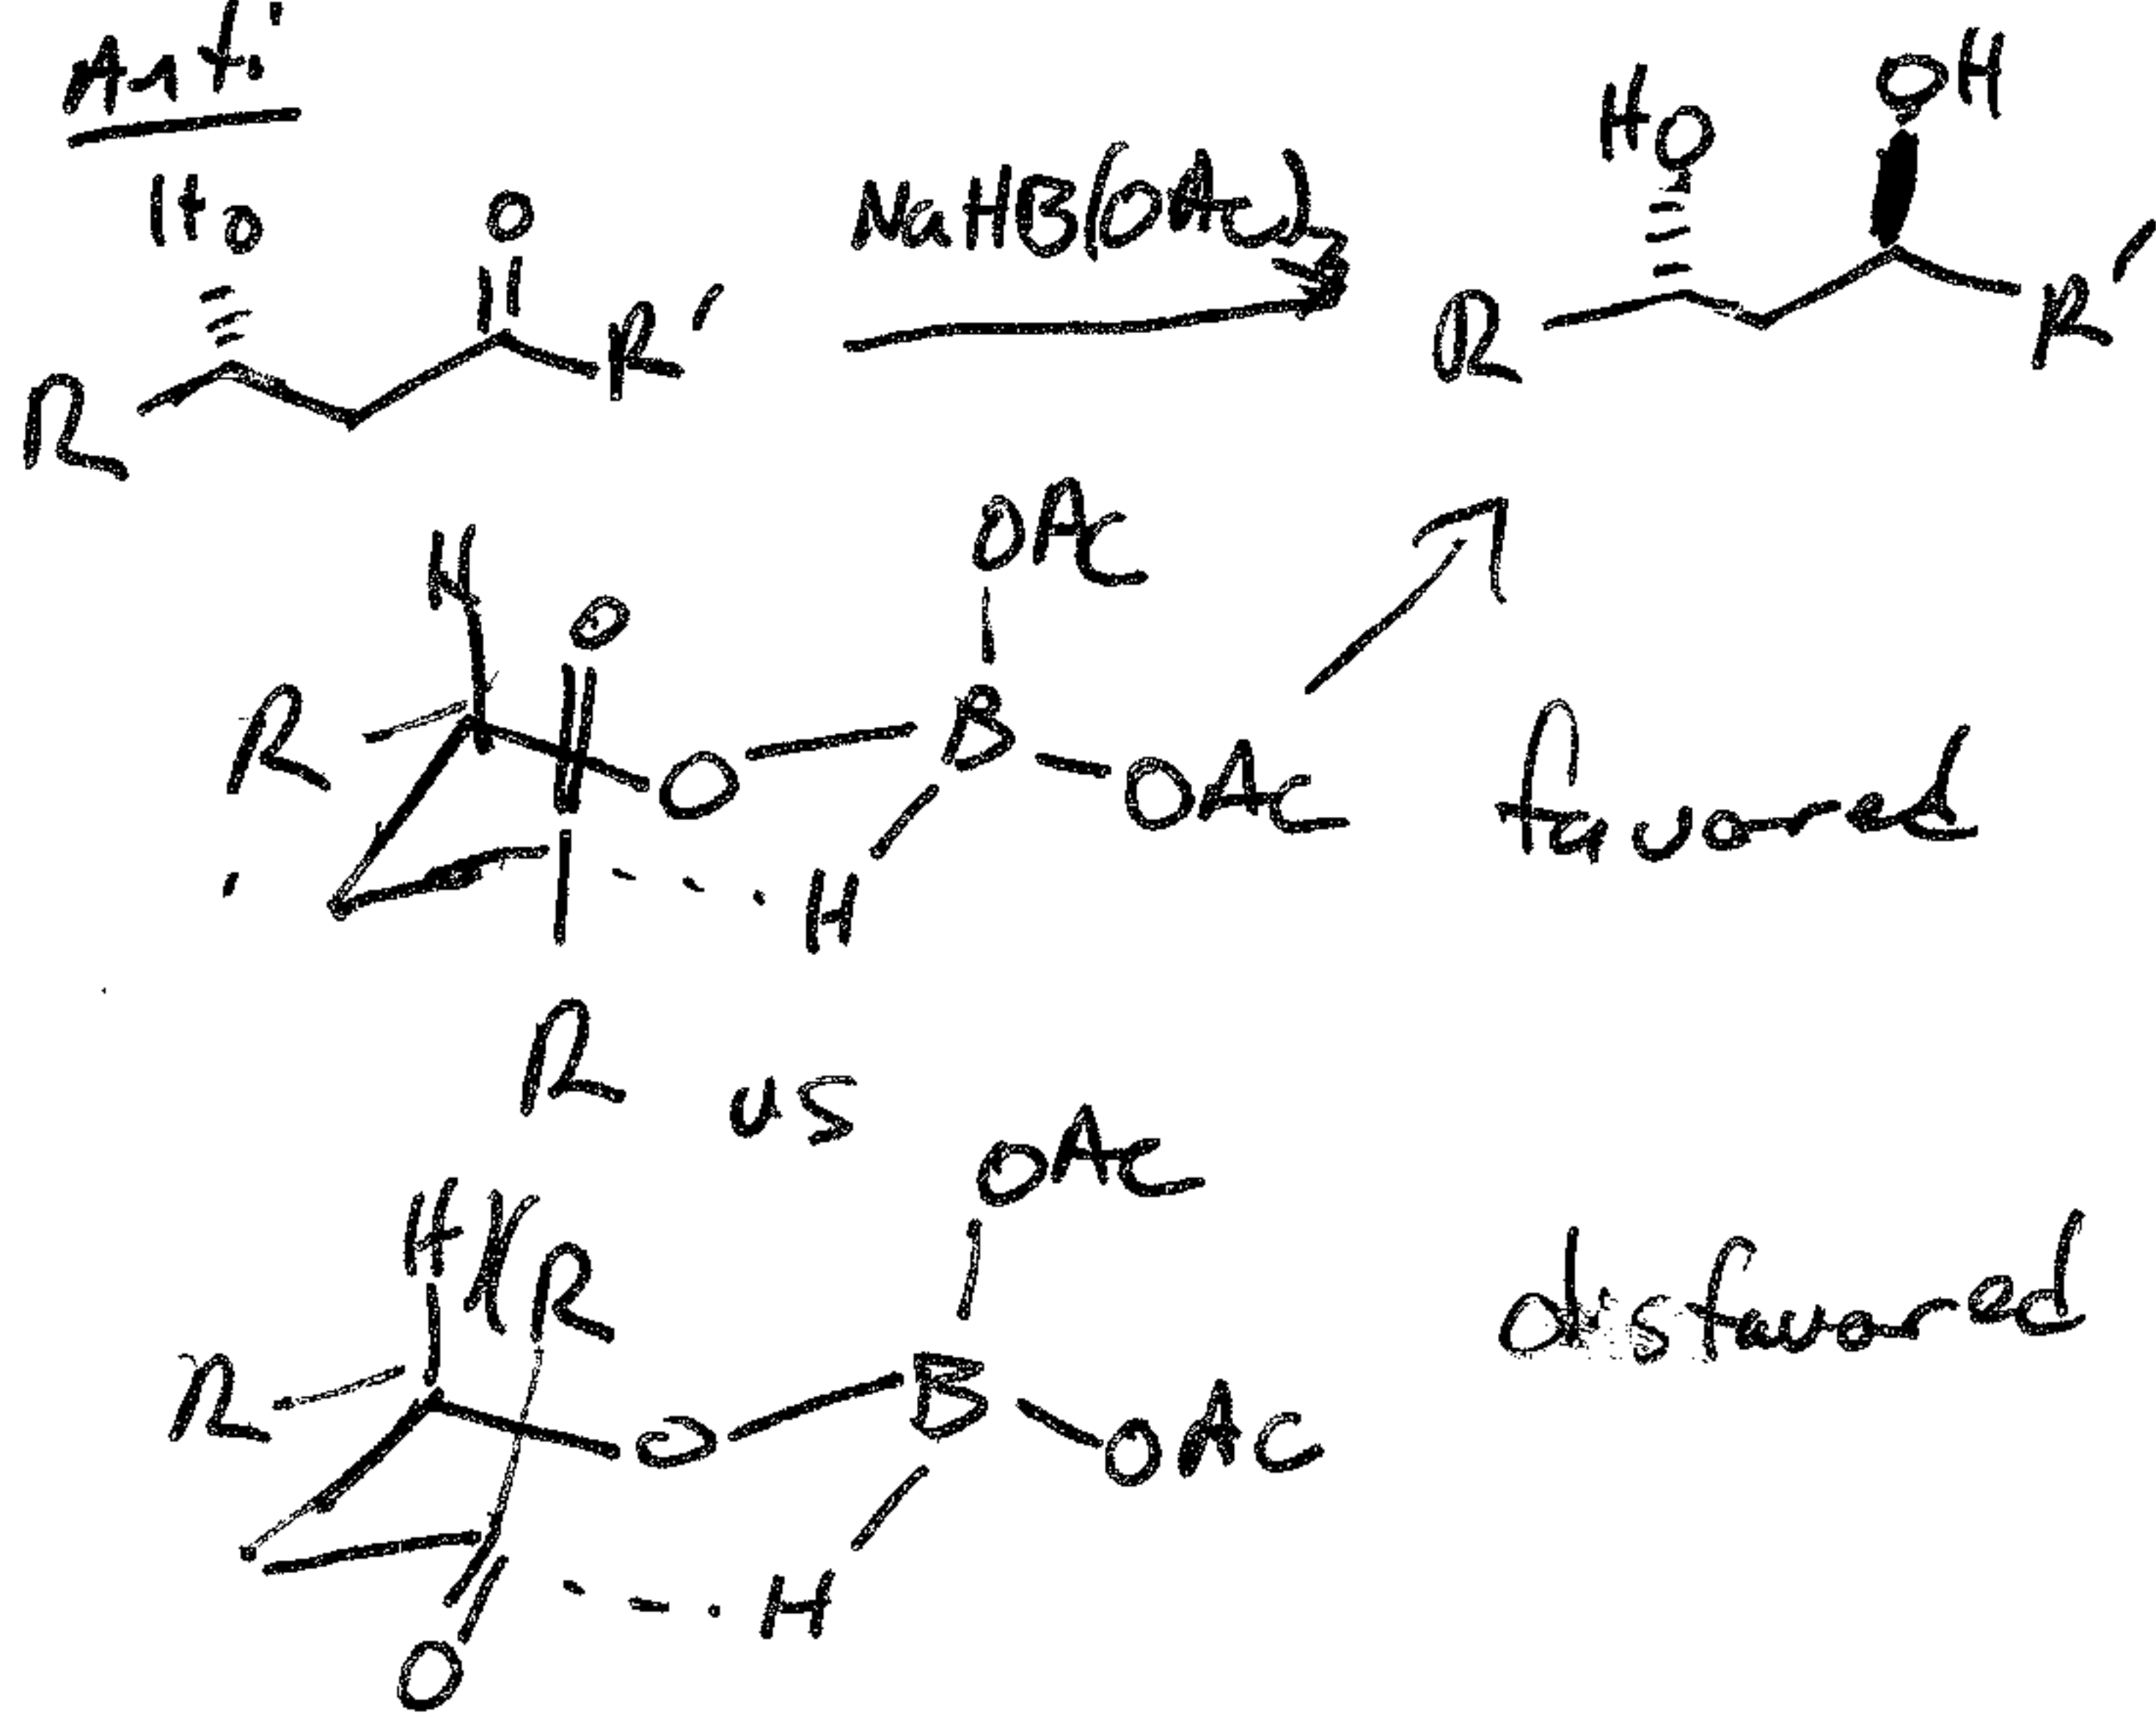 Anti
HO O
R R'
NaHB(OAc)3
HO OH
R R'
H O OAc
R O B OAc
H
R
favored
vs
H R OAc
R O B OAc
O H
disfavored